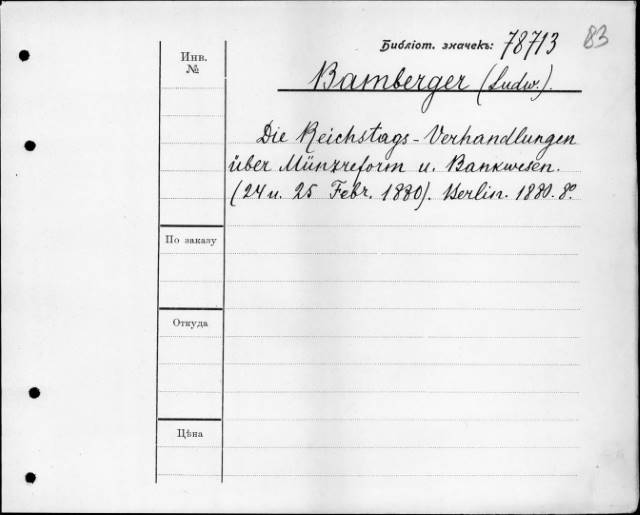 Библіот. значекъ: 78713
83
Инв.
№
Bamberger (Ludw.).
Die Reichstags-Verhandlungen
über Münzreform u. Bankwesen.
(24 u. 25 Febr. 1880). Berlin. 1880. 8º.
По заказу
Откуда
Цѣна